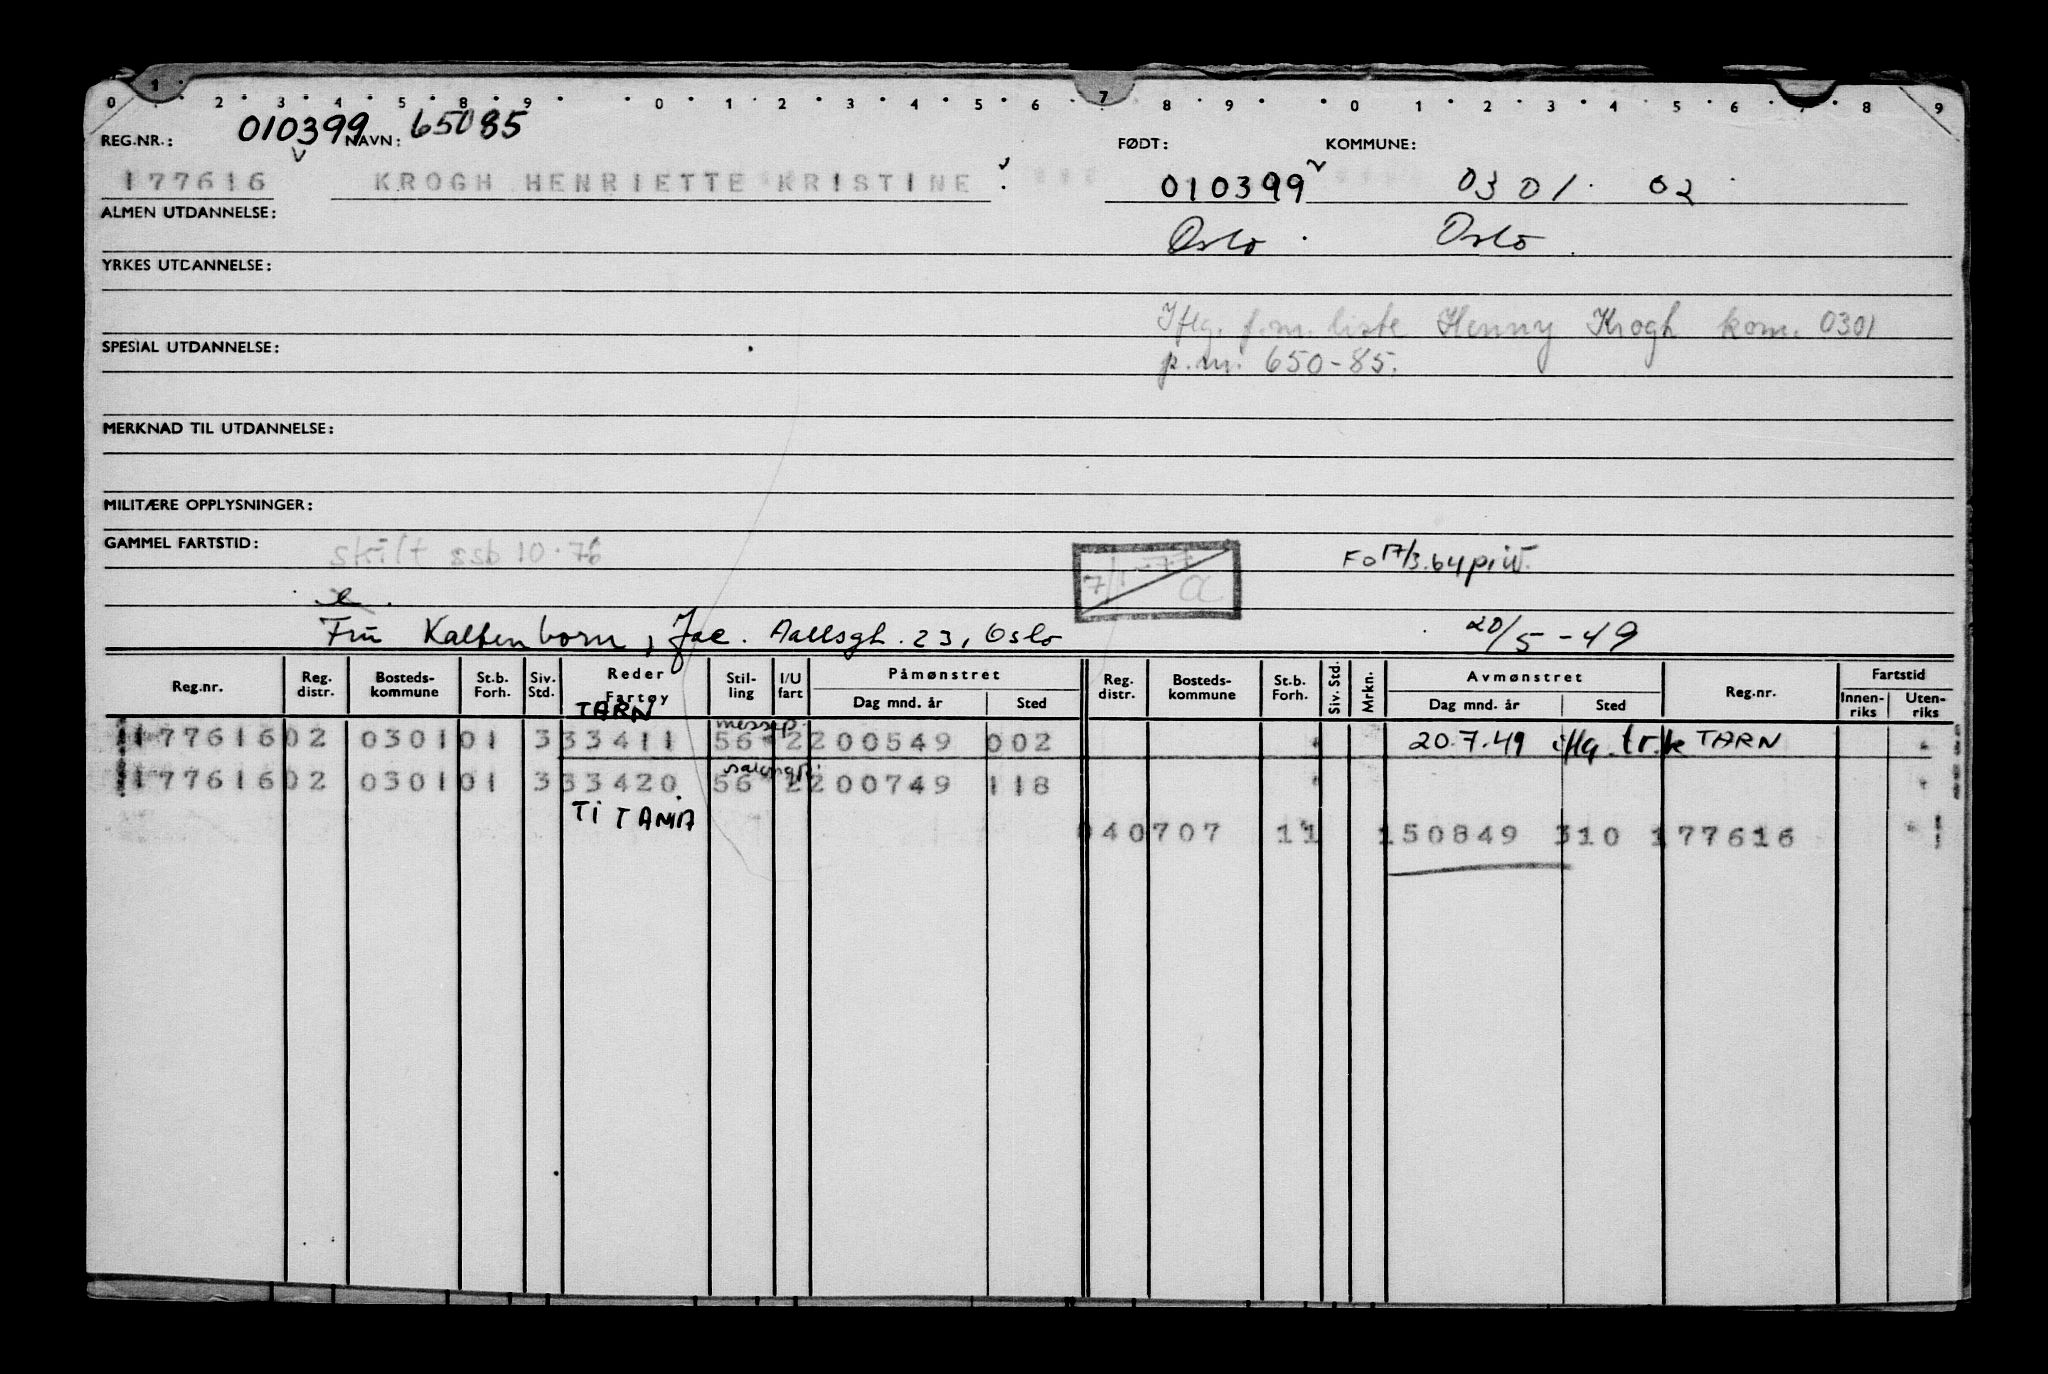 0 1 2 3 4 5 8 9 0 1 2 3 4 5 6 7 8 9 0 1 2 3 4 5 6 7 8 9
REG.NR.: 010399 NAVN: 65085 FØDT: KOMMUNE:
177616 KROGH HENRIETTE KRISTINE 010399 0301 02
ALMEN UTDANNELSE: Oslo Oslo
YRKES UTDANNELSE:
Iflg. f.m. liste Henny Krogh kom. 0301
SPESIAL UTDANNELSE: p.nr. 650-85.
MERKNAD TIL UTDANNELSE:
MILITÆRE OPPLYSNINGER:
GAMMEL FARTSTID: skilt ssb 10.76 7/1-77 a FO 17/3.64 priv.
e.
Fru Kaltenborn, Jac. Aallsgt. 23, Oslo 20/5-49
Reg.nr. Reg. distr. Bosteds-kommune St.b. Forh. Siv. Std. Reder Fartøy Stil-ling I/U fart Påmønstret Dag mnd. år Sted Reg. distr. Bosteds-kommune St.b. Forh. Siv. Std. Mrkn. Avmønstret Dag mnd. år Sted Reg.nr. Fartstid Innen-riks Uten-riks
TARN messp.
177616 02 0301 01 3 33411 56 2 200549 002 20.7.49 iflg. tr.k TARN
salongp.
177616 02 0301 01 3 33420 56 2 200749 118
TITANIA
04 0707 11 150849 310 177616